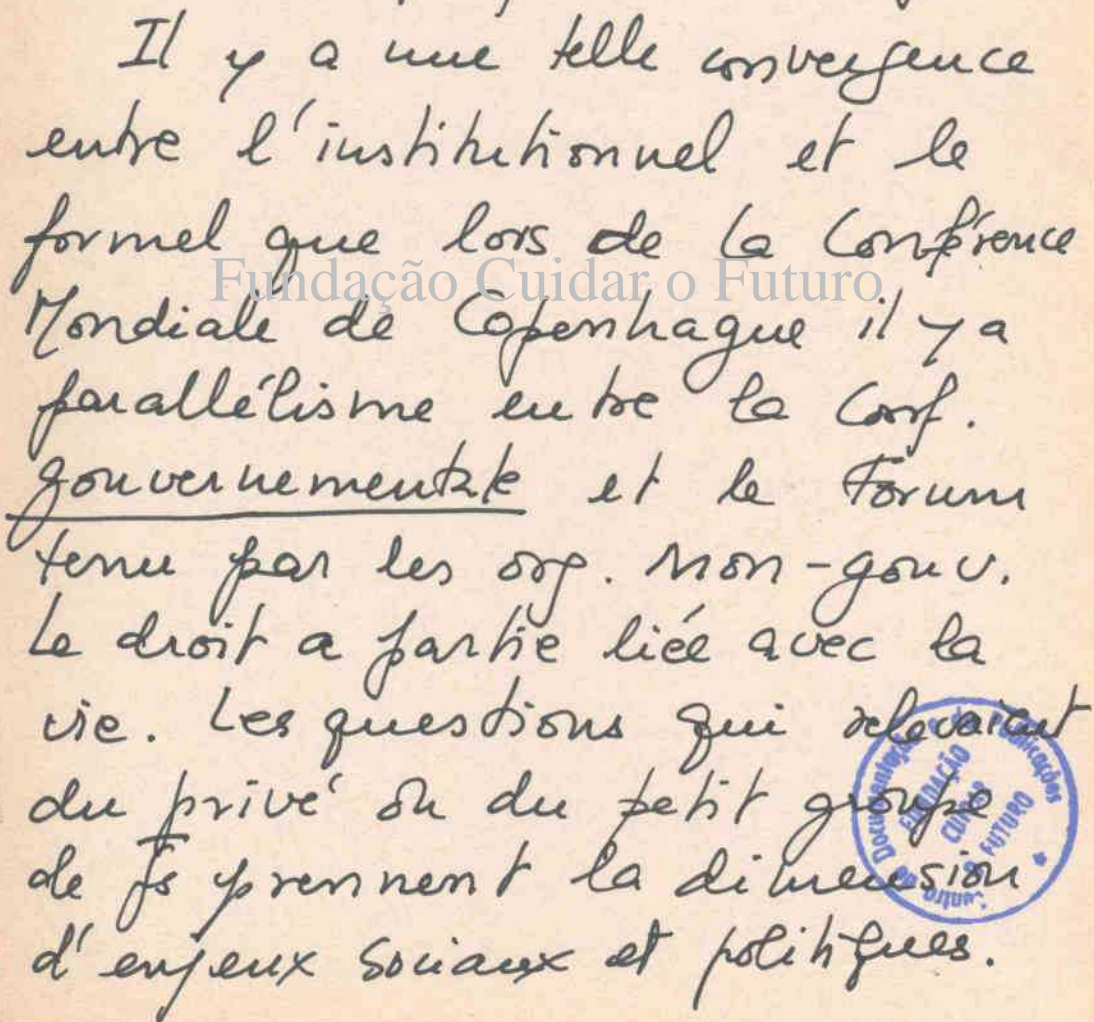 Il y a une telle convergence
entre l'institutionnel et le
formel que lors de la Conférence
Fundação Cuidar o Futuro
Mondiale de Copenhague il y a
parallélisme entre la Conf.
gouvernementale et le Forum
tenu par les org. non-gouv.
Le droit a partie liée avec la
vie. Les questions qui relevaient
du privé ou du petit groupe
de Fs y prennent la dimension
d'enjeux sociaux et politiques.
Centro de Documentação e de Publicações
FUNDAÇÃO
CUIDAR
O FUTURO